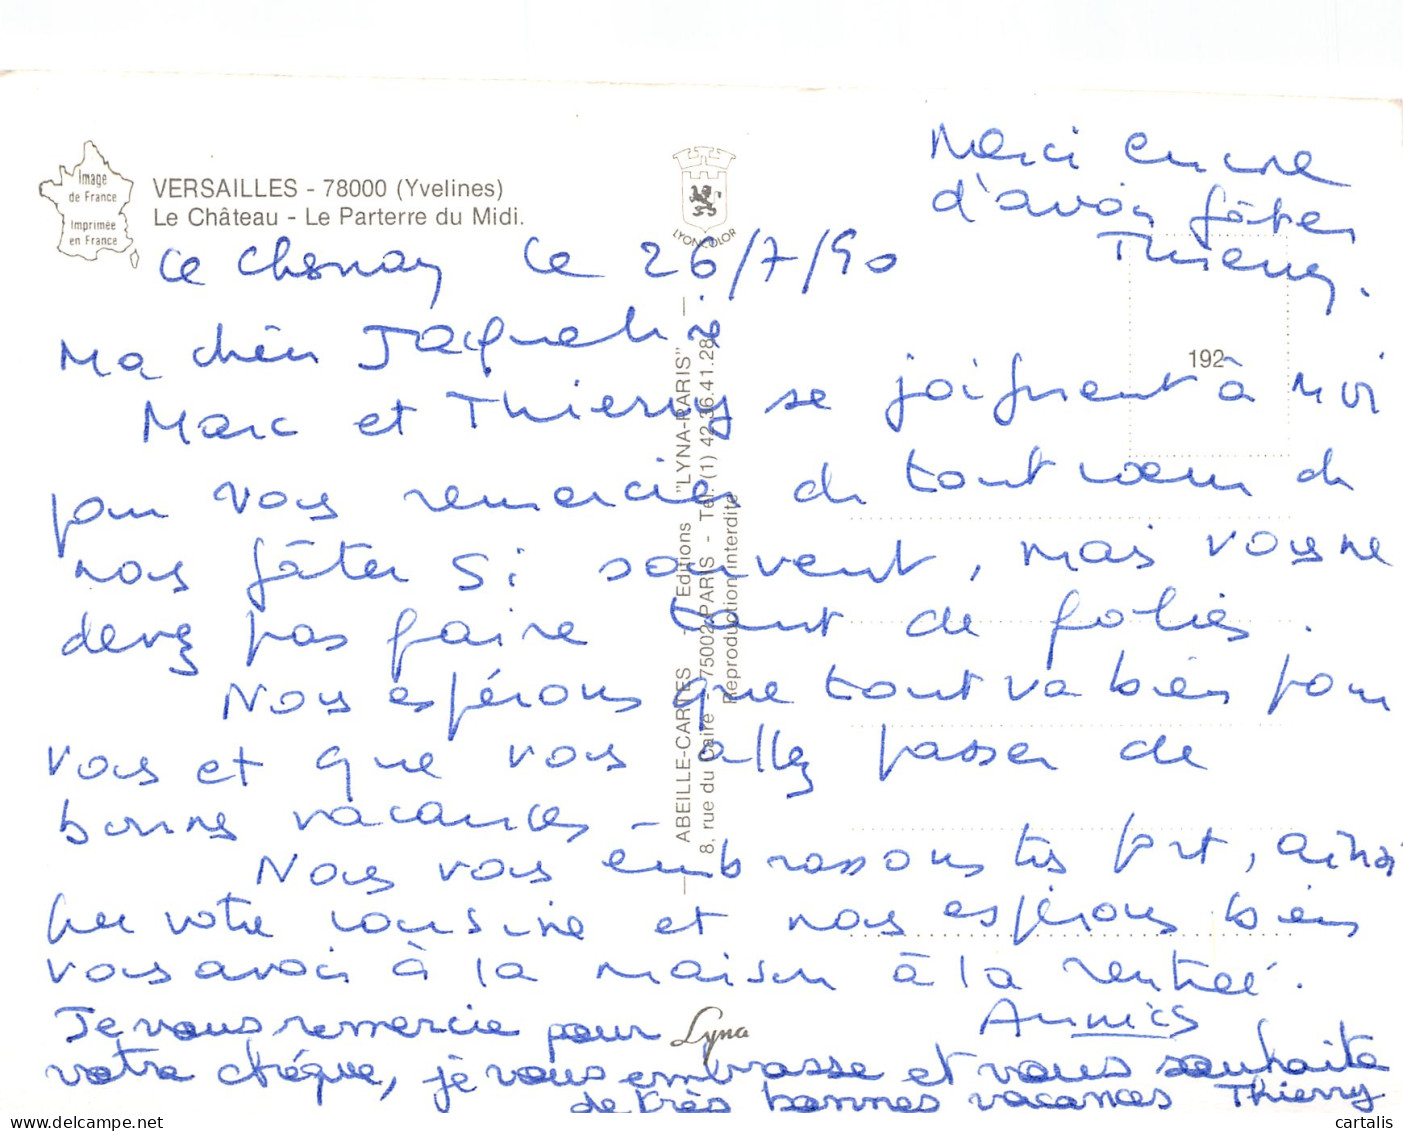 Image
de France
Imprimée
en France
VERSAILLES - 78000 (Yvelines)
Le Château - Le Parterre du Midi.
LYONCOLOR
Merci encore
d'avoir fêter
Thierry.
Le Chesnay le 26/7/90
Ma chère Jaqueline
Marc et Thierry se joignent à moi
192
pour vous remercier de tout cœur de
nous gâter si souvent, mais vous ne
devez pas faire tant de folies.
Nous espérons que tout va bien pour
vous et que vous allez passer de
bonnes vacances -
Nous vous embrassons très fort, ainsi
que votre cousine et nous espérons bien
vous avoir à la maison à la rentrée.
Annick
Je vous remercie pour
votre chéque, je vous embrasse et vous souhaite
de très bonnes vacances Thierry
Lyna
ABEILLE-CARTES - Editions "LYNA-PARIS"
8, rue du Caire - 75002 PARIS - Tél. (1) 42.36.41.28
Reproduction interdite
cartalis